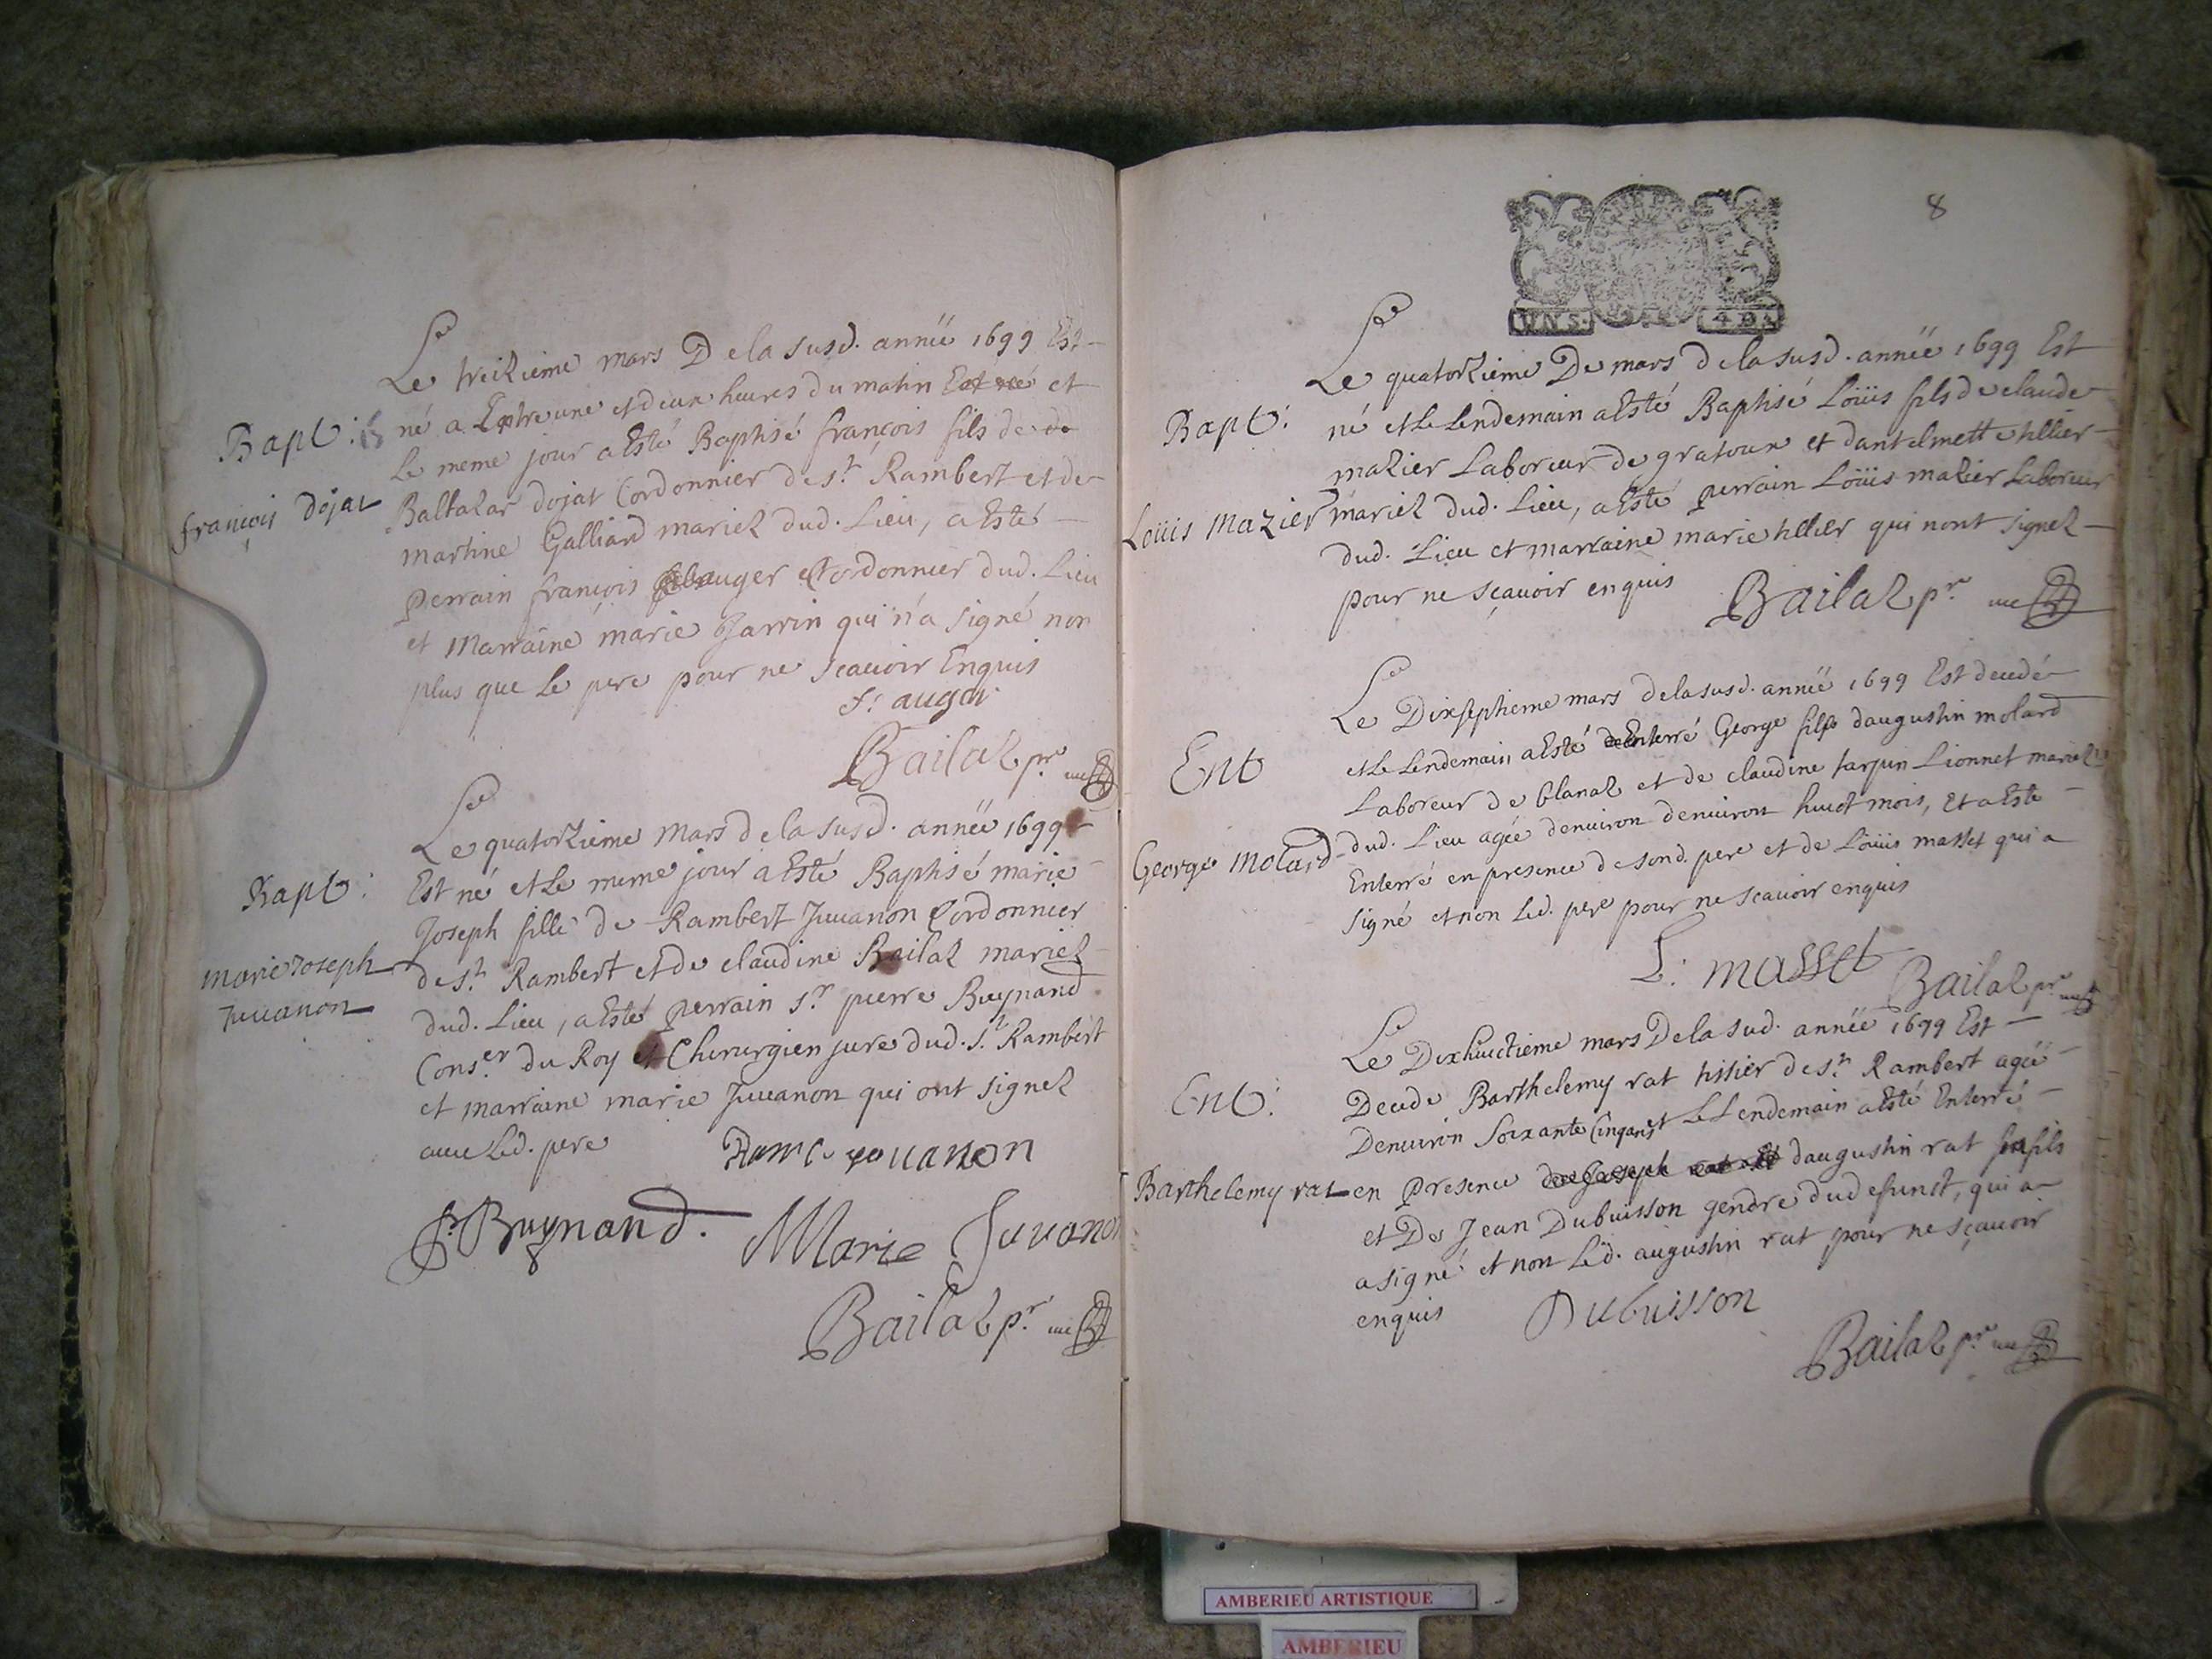 Le treizieme mars De la susd. année 1699 Est
né a Entre une et deux heures du matin Est né et
Bapt:
le meme jour a Esté Baptisé françois fils de de
françois Dojat
Baltazar dojat Cordonnier de st. Rambert et de
martine Galliard mariez dud. Lieu, a Esté
perrain françois auger Cordonnier dud. Lieu
et Marraine marie Jarrin qui n'a signé non
plus que le pere pour ne scauoir Enquis
f: auger
Bailaz pr.
Le quatorzieme Mars de la susd. année 1699
Bapt:
Est né et le meme jour a Esté Baptisé marie
Joseph fille de Rambert Juuanon Cordonnier
marie Joseph
Juuanon
de st. Rambert et de claudine Bailaz mariez
dud. Lieu, a Esté perrain sr. pierre Buynand
Conser. du Roy et Chirurgien juré dud. st. Rambert
et marraine marie Juuanon qui ont signez
auec led. pere
Ramb. youanon
P. Buynand.
Marie Juuanon
Bailaz pr.
8
Le quatorzieme De mars de la susd. année 1699 Est
Bapt:
né et Le Lendemain a Esté Baptisé Loüis fils de claude
mazier Laboreur de gratoux et dantelmette tillier
Loüis Mazier
mariez dud. Lieu, a Esté perrain Loüis mazier Laboreur
dud. Lieu et marraine marie tillier qui nont signez
pour ne sçauoir enquis
Bailaz pr.
Le Dixseptieme mars de la susd. année 1699 Est decedé
Ent
et Le Lendemain a Esté Enterré George fils daugustin molard
Laboreur de blanaz et de claudine tarpin Lionnet mariez
George Molard
dud. Lieu agée denuiron denuiron huict mois, Et a Esté
Enterré en presence de sond. pere et de Loüis masset qui a
signé et non Led. pere pour ne scauoir enquis
L: masset
Bailaz pr.
Le Dixhuictieme mars De la sud. année 1699 Est
Ent:
Decede Barthelemy rat tissier de st. Rambert agée
Denuiron Soixante Cinq ans et Le Lendemain a Esté Enterré
Barthelemy rat
en presence de Joseph rat daugustin rat fils
et De Jean Dubuisson gendre dud efunct, qui a
a signé et non Led. augustin rat pour ne sçauoir
enquis
Dubuisson
Bailaz pr.
AMBERIEU ARTISTIQUE
AMBERIEU